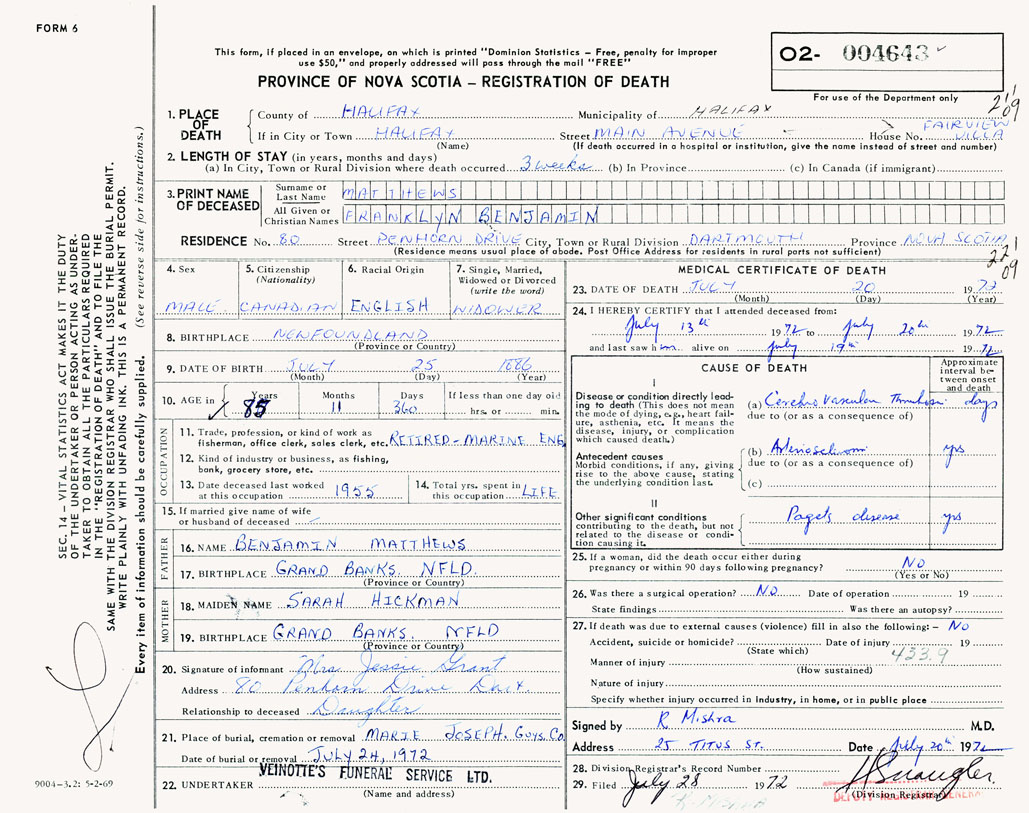 FORM 6
This form, if placed in an envelope, on which is printed "Dominion Statistics – Free, penalty for improper
use $50," and properly addressed will pass through the mail "FREE"
PROVINCE OF NOVA SCOTIA – REGISTRATION OF DEATH
02- 004643
For use of the Department only
1. PLACE OF DEATH
County of HALIFAX Municipality of HALIFAX
If in City or Town HALIFAX Street MAIN AVENUE House No. FAIRVIEW VILLA
(Name) (If death occurred in a hospital or institution, give the name instead of street and number)
2. LENGTH OF STAY (in years, months and days)
(a) In City, Town or Rural Division where death occurred 3 weeks (b) In Province (c) In Canada (if immigrant)
3. PRINT NAME OF DECEASED
Surname or Last Name MATTHEWS
All Given or Christian Names FRANKLYN BENJAMIN
RESIDENCE No. 80 Street PENHORN DRIVE City, Town or Rural Division DARTMOUTH Province NOVA SCOTIA
(Residence means usual place of abode. Post Office Address for residents in rural parts not sufficient)
4. Sex
MALE
5. Citizenship
(Nationality)
CANADIAN
6. Racial Origin
ENGLISH
7. Single, Married,
Widowed or Divorced
(write the word)
WIDOWER
8. BIRTHPLACE NEWFOUNDLAND
(Province or Country)
9. DATE OF BIRTH JULY 25 1886
(Month) (Day) (Year)
10. AGE in Years Months Days If less than one day old
85 11 hrs. or min.
OCCUPATION
11. Trade, profession, or kind of work as
fisherman, office clerk, sales clerk, etc. RETIRED - MARINE ENG.
12. Kind of industry or business, as fishing,
bank, grocery store, etc.
13. Date deceased last worked
at this occupation 1955
14. Total yrs. spent in
this occupation LIFE
15. If married give name of wife
or husband of deceased
FATHER
16. NAME BENJAMIN MATTHEWS
17. BIRTHPLACE GRAND BANKS. NFLD.
(Province or Country)
MOTHER
18. MAIDEN NAME SARAH HICKMAN
19. BIRTHPLACE GRAND BANKS. NFLD
(Province or Country)
20. Signature of informant Mrs Jessie Grant
Address 80 Penhorn Drive Dart.
Relationship to deceased Daughter
21. Place of burial, cremation or removal MARIE JOSEPH. GUYS. CO
Date of burial or removal JULY 24, 1972
22. UNDERTAKER VEINOTTE'S FUNERAL SERVICE LTD.
(Name and address)
MEDICAL CERTIFICATE OF DEATH
23. DATE OF DEATH JULY 20 1972
(Month) (Day) (Year)
24. I HEREBY CERTIFY that I attended deceased from:
July 13th 1972 to July 20th 1972
and last saw him alive on July 19th 1972
CAUSE OF DEATH
Approximate
interval be-
tween onset
and death
I
Disease or condition directly lead-
ing to death (This does not mean
the mode of dying, e.g., heart fail-
ure, asthenia, etc. It means the
disease, injury, or complication
which caused death.)
(a) Cerebro Vascular Thrombosis days
due to (or as a consequence of)
Antecedent causes
Morbid conditions, if any, giving
rise to the above cause, stating
the underlying condition last.
(b) Arteriosclerosis yrs
due to (or as a consequence of)
(c)
II
Other significant conditions
contributing to the death, but not
related to the disease or condi-
tion causing it.
Pagets disease yrs
25. If a woman, did the death occur either during
pregnancy or within 90 days following pregnancy? NO
(Yes or No)
26. Was there a surgical operation? NO Date of operation 19
State findings Was there an autopsy?
27. If death was due to external causes (violence) fill in also the following: – NO
Accident, suicide or homicide? Date of injury 19
(State which) 433.9
Manner of injury
(How sustained)
Nature of injury
Specify whether injury occurred in industry, in home, or in public place
Signed by R Mishra M.D.
Address 25 TITUS ST. Date July 20th 1972
28. Division Registrar's Record Number
29. Filed July 28 1972
(Division Registrar)
DEPUTY REGISTRAR GENERAL
R. MISHRA
SEC. 14 – VITAL STATISTICS ACT MAKES IT THE DUTY
OF THE UNDERTAKER OR PERSON ACTING AS UNDER-
TAKER TO OBTAIN ALL THE PARTICULARS REQUIRED
IN THE "REGISTRATION OF DEATH" AND TO FILE THE
SAME WITH THE DIVISION REGISTRAR WHO SHALL ISSUE THE BURIAL PERMIT.
WRITE PLAINLY WITH UNFADING INK. THIS IS A PERMANENT RECORD.
Every item of information should be carefully supplied. (See reverse side for instructions.)
9004-3.2: 5-2-69